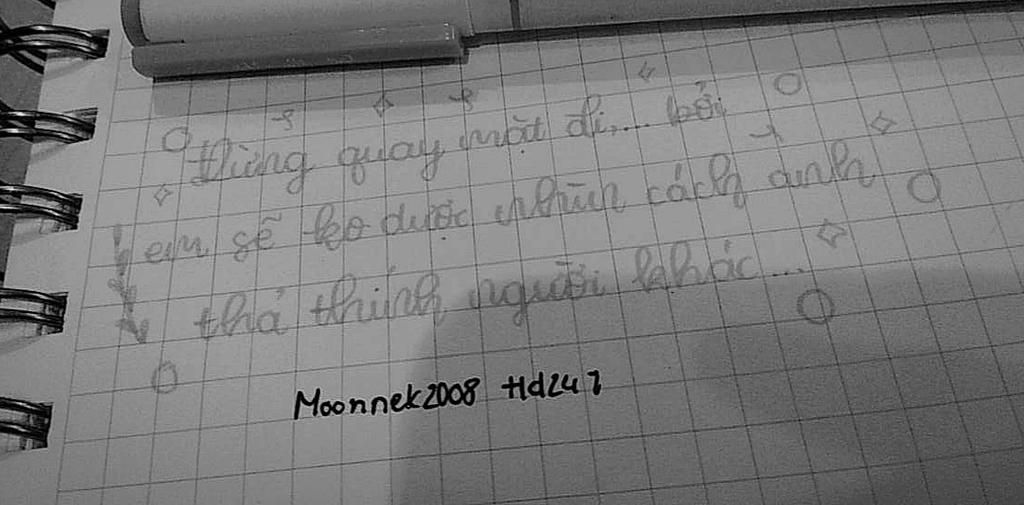 Đừng quay mặt đi,... bởi
em sẽ ko được nhìn cách anh
thả thính người khác...
Moonnek2008 Hd247